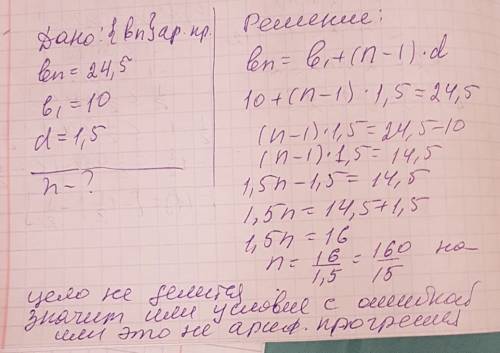 Дано: {вn} ар. пр.
вn = 24,5
в₁ = 10
d = 1,5
n - ?
Решение:
вn = в₁ + (n - 1) · d
10 + (n - 1) · 1,5 = 24,5
(n - 1) · 1,5 = 24,5 - 10
(n - 1) · 1,5 = 14,5
1,5n - 1,5 = 14,5
1,5n = 14,5 + 1,5
1,5n = 16
n = 16/1,5 = 160/15 на
цело не делится
значит или условие с ошибкой
или это не ариф. прогрессия